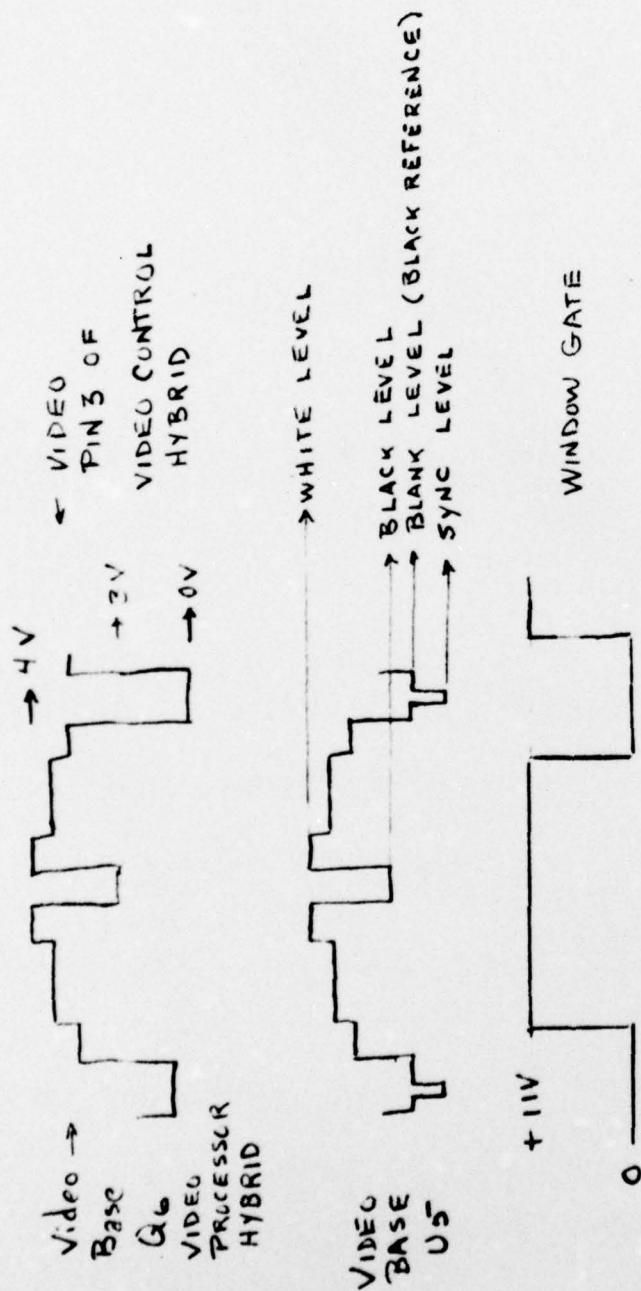 Video →
Base
Q6
VIDEO
PROCESSOR
HYBRID
→ 4V
→ 3V
→ 0V
← VIDEO
PIN 3 OF
VIDEO CONTROL
HYBRID
VIDEO
BASE
U5
→ WHITE LEVEL
→ BLACK LEVEL
→ BLANK LEVEL (BLACK REFERENCE)
→ SYNC LEVEL
+11V
0
WINDOW GATE